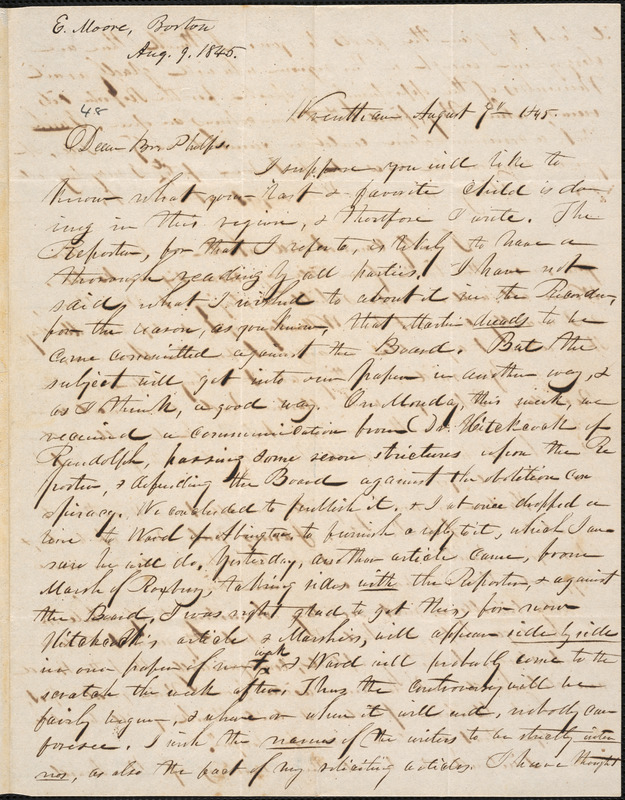 E. Moore, Boston
Aug. 9. 1845.
48
Wrentham August 9th 1845.
Dear Bro Phelps.
I suppose you will like to
know what your last & favorite child is do-
ing in this region, & therefore I write. The
Reporter, for that I refer to, is likely to have a
thorough reading by all parties. I have not
said what I wished to about it in the Recorder,
for the reason, as you know, that Martin dreads to be
come committed against the Board. But the
subject will get into our paper in another way, &
as I think, a good way. On Monday this week, we
received a communication from Dr. Hitchcock of
Randolph, passing some severe strictures upon the Re
porter, & defending the Board against the abolition con
spiracy. We concluded to publish it. & I at once dropped a
line to Ward of Abington to furnish a reply to it, which I am
sure he will do. Yesterday, another article came, from
Marsh of Roxbury, taking sides with the Reporter, & against
the Board. I was right glad to get this, for now
Hitchcock's article & Marsh's, will appear side by side
in our paper of next week & Ward will probably come to the
scratch the week after. Thus the controversy will be
fairly begun, & where or when it will end, nobody can
foresee. I wish the names of the writers to be strictly inter
nos, as also the fact of my soliciting articles. I have thought